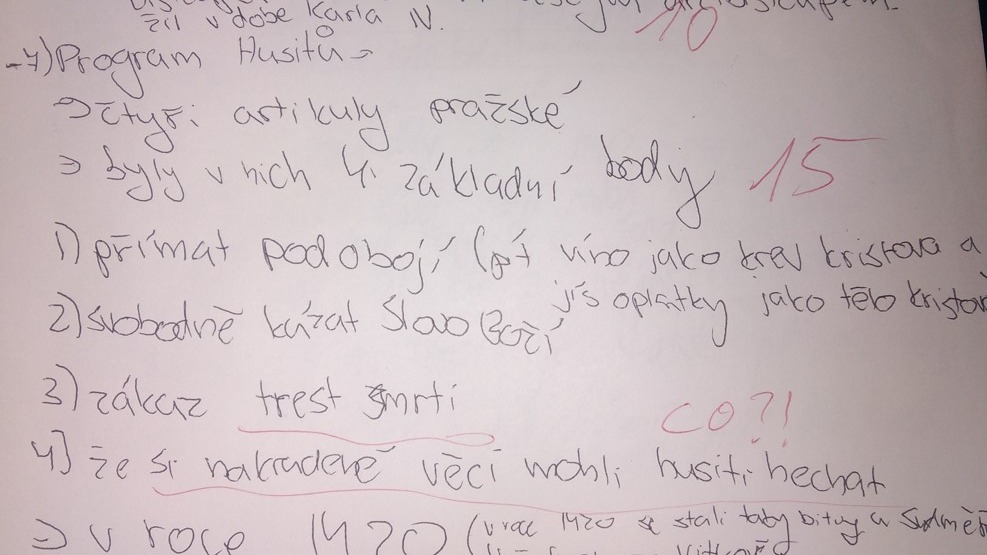 žil v době Karla IV. 10
7) Program Husitů
⇒ čtyři artikuly pražské
⇒ byly v nich 4. základní body 15
1) přímat pod obojí (pít víno jako krev kristova a
jís oplatky jako tělo kristov
2) svobodně kázat Slovo Boží
3) zákaz trest smrti CO?!
4) že si nakradené věci mohli husiti nechat
⇒ v roce 1420 (v roc 1420 se stali taby bitvy u Sudměř